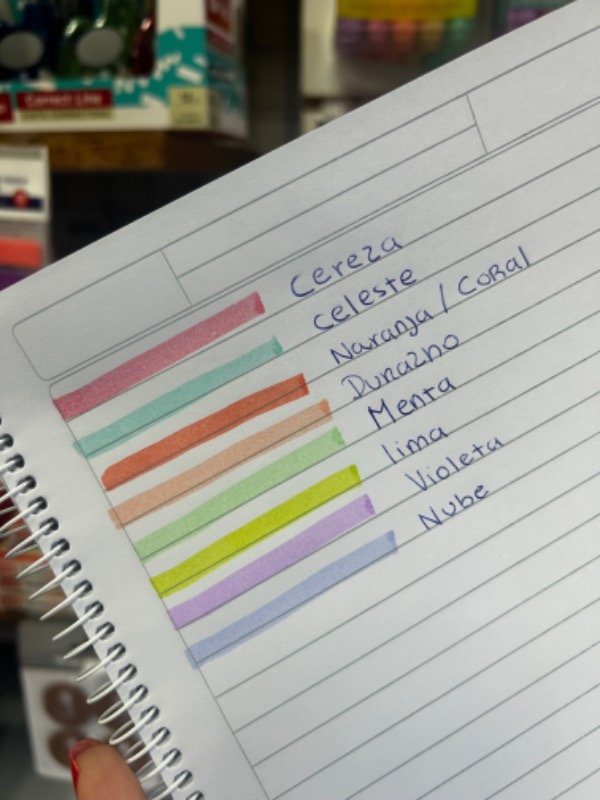 Correct Line
Cereza
Celeste
Naranja / Coral
Durazno
Menta
lima
Violeta
Nube